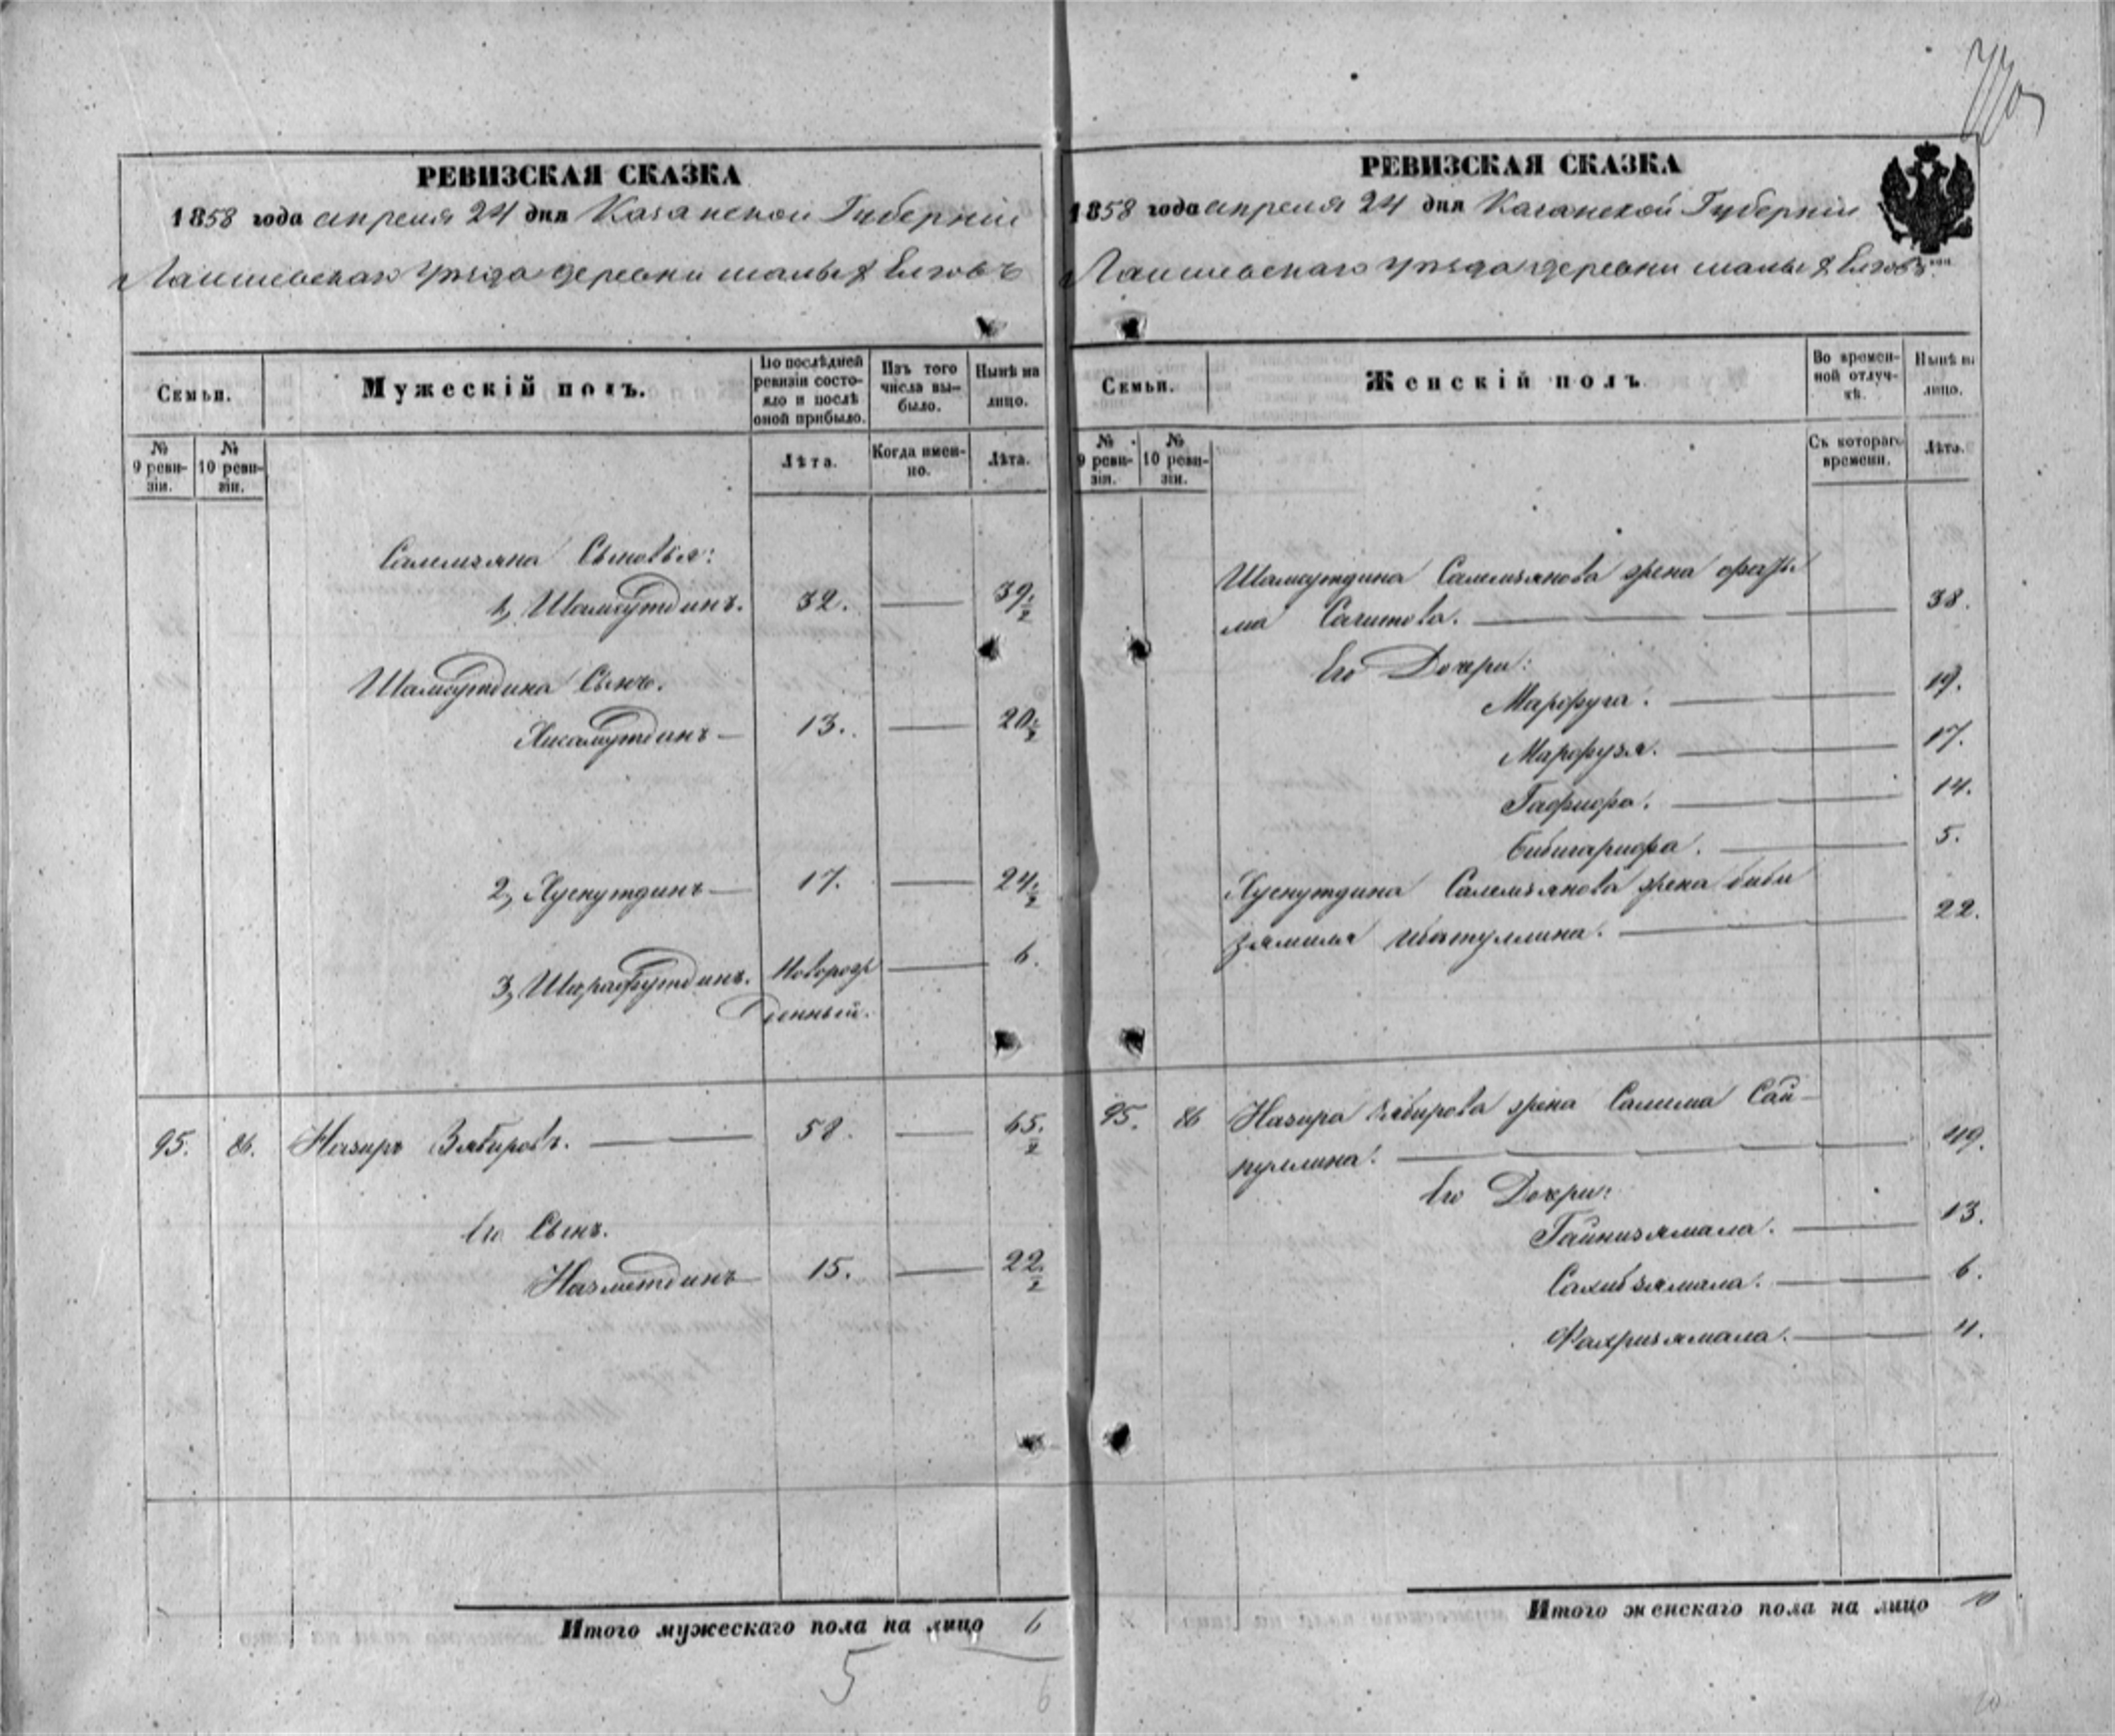 РЕВИЗСКАЯ СКАЗКА
1858 года апреля 24 дня Казанской Губерніи
Лаишевскаго уѣзда деревни малых Елговъ
Семьи.
Мужескій полъ.
По послѣдней ревизіи состояло и послѣ оной прибыло.
Изъ того числа выбыло.
Нынѣ на лицо.
№ 9 ревизіи.
№ 10 ревизіи.
Лѣта.
Когда именно.
Лѣта.
Салемзяна Сыновья:
1, Шамсутдинъ. 32. — 39 1/2
Шамсутдина Сынъ.
Хисамутдинъ — 13. — 20 1/2
2, Хуснутдинъ — 17. — 24 1/2
3, Шарафутдинъ. Новорож — 6.
денный.
95. 86. Назиръ Зябировъ. — 58. — 65 1/2
Его Сынъ.
Назметдинъ — 15. — 22 1/2
Итого мужескаго пола на лицо 6
5
6
РЕВИЗСКАЯ СКАЗКА
1858 года апреля 24 дня Казанской Губерніи
Лаишевскаго уѣзда деревни малых Елговъ
Семьи.
Женскій полъ
Во временной отлучкѣ.
Нынѣ на лицо.
№ 9 ревизіи.
№ 10 ревизіи.
Съ котораго времени.
Лѣта.
Шамсутдина Салемзянова жена
ма Сагитова. — 38.
Его Дочери:
Марфуга. — 19.
Марфузя. — 17.
Гафифа. — 14.
Бибигарифа. — 5.
Хуснутдина Салемзянова жена биби
зямиля Ибатуллина. — 22.
95. 86 Назира Зябирова жена Салима Сай-
пуллина. — 49.
Его Дочери:
Гайнизямала. — 13.
Сахибзямала. — 6.
Фахризямала. — 4.
Итого женскаго пола на лицо 10
10